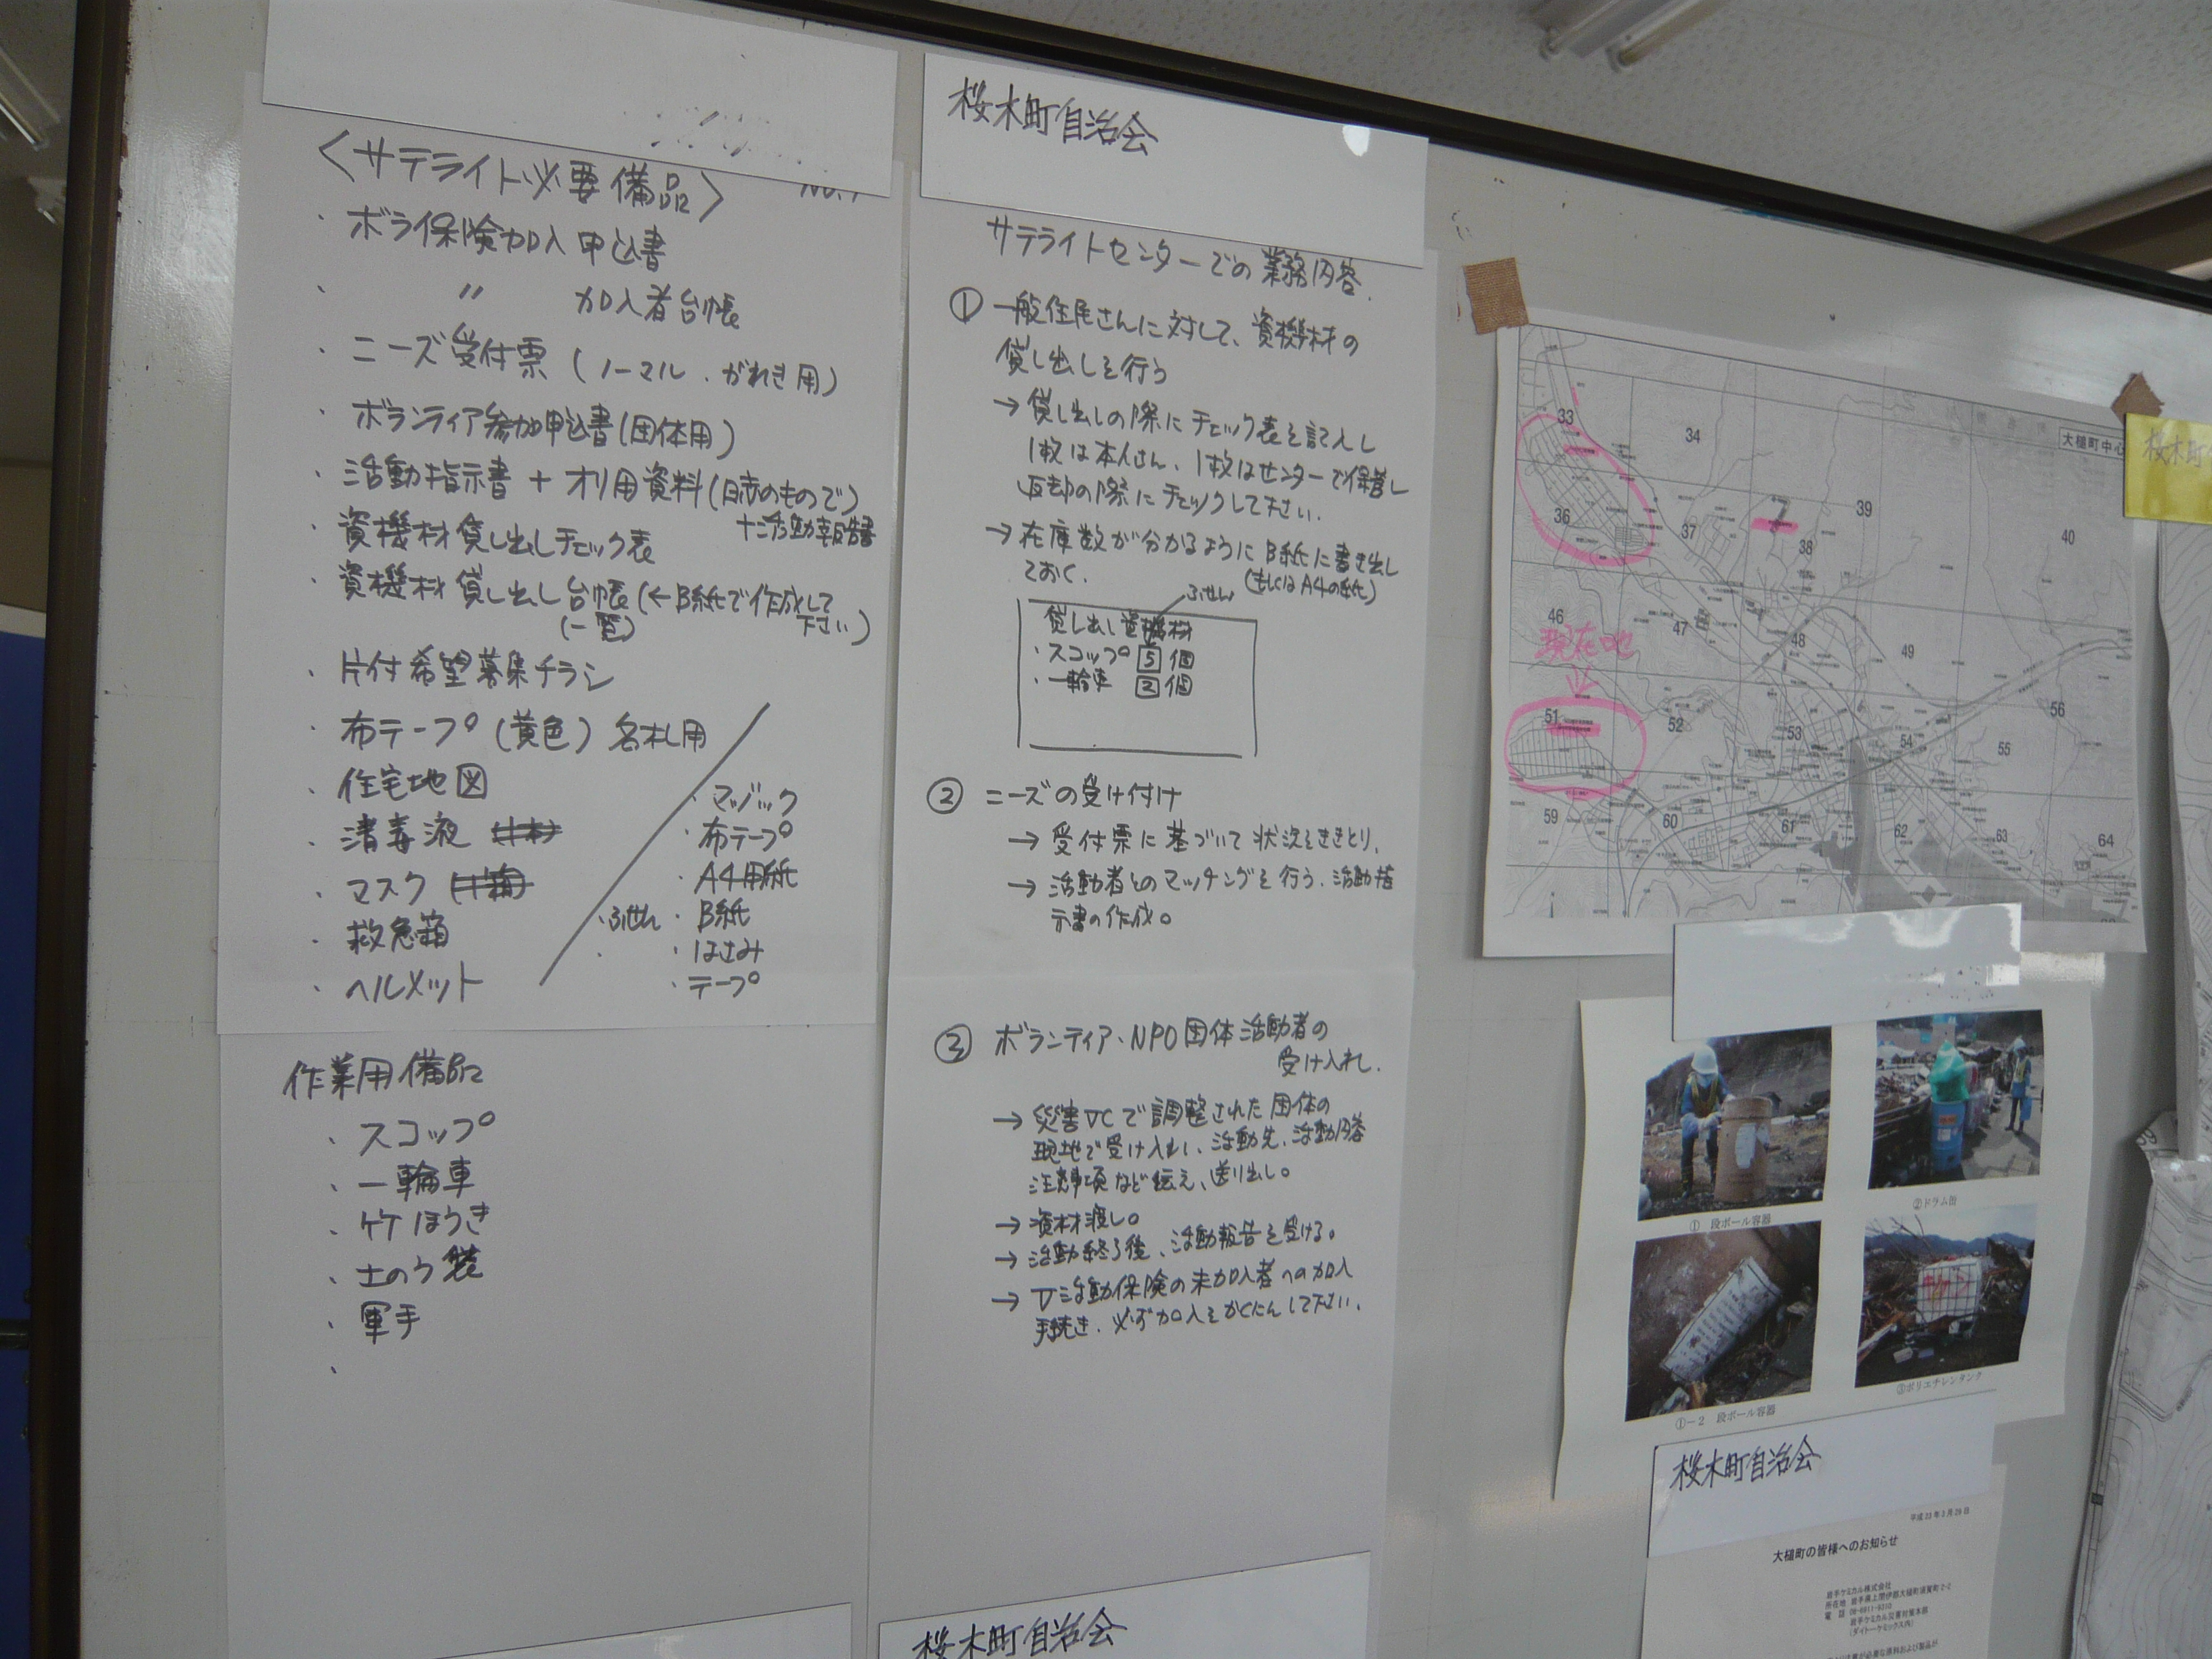 <サテライト必要備品>
No.1
・ボラ保険加入申込書
・ 〃 加入者台帳
・ニーズ受付票(ノーマル・がれき用)
・ボランティア参加申込書(団体用)
・活動指示書+オリ用資料(日赤のもので)
+活動報告書
・資機材貸し出しチェック表
・資機材貸し出し台帳(←B紙で作成して
(一覧) 下さい)
・片付希望募集チラシ
・布テープ(黄色)名札用
・住宅地図
・消毒液
・マスク
・救急箱
・ヘルメット
・マジック
・布テープ
・A4用紙
・ふせん ・B紙
・はさみ
・テープ
作業用備品
・スコップ
・一輪車
・竹ほうき
・土のう袋
・軍手
桜木町自治会
サテライトセンターでの業務内容.
① 一般住民さんに対して、資機材の
貸し出しを行う
→貸し出しの際にチェック表を記入し
1枚は本人さん、1枚はセンターで保管し
返却の際にチェックして下さい.
→在庫数が分かるようにB紙に書き出し
ておく. (もしくはA4の紙)
ふせん
貸し出し資機材
・スコップ 5個
・一輪車 2個
② ニーズの受け付け
→受付票に基づいて状況をききとり、
→活動者とのマッチングを行う.活動指
示書の作成。
③ ボランティア、NPO団体活動者の
受け入れ.
→災害VCで調整された団体の
現地で受け入れ、活動先、活動内容
注意事項など伝え、送り出し。
→資材渡し。
→活動終了後、活動報告を受ける。
→V活動保険の未加入者への加入
手続き.必ず加入をかくにんして下さい.
桜木町自治会
大槌町中心
33
34
36
37
38
39
40
46
47
48
49
現在地
51
52
53
54
55
56
59
60
61
62
63
64
桜木町
① 段ボール容器
②ドラム缶
①-2 段ボール容器
③ポリエチレンタンク
桜木町自治会
平成23年3月29日
大槌町の皆様へのお知らせ
岩手ケミカル株式会社
所在地 岩手県上閉伊郡大槌町須賀町2-2
電 話
岩手ケミカル災害対策本部
(ダイトーケミックス内)